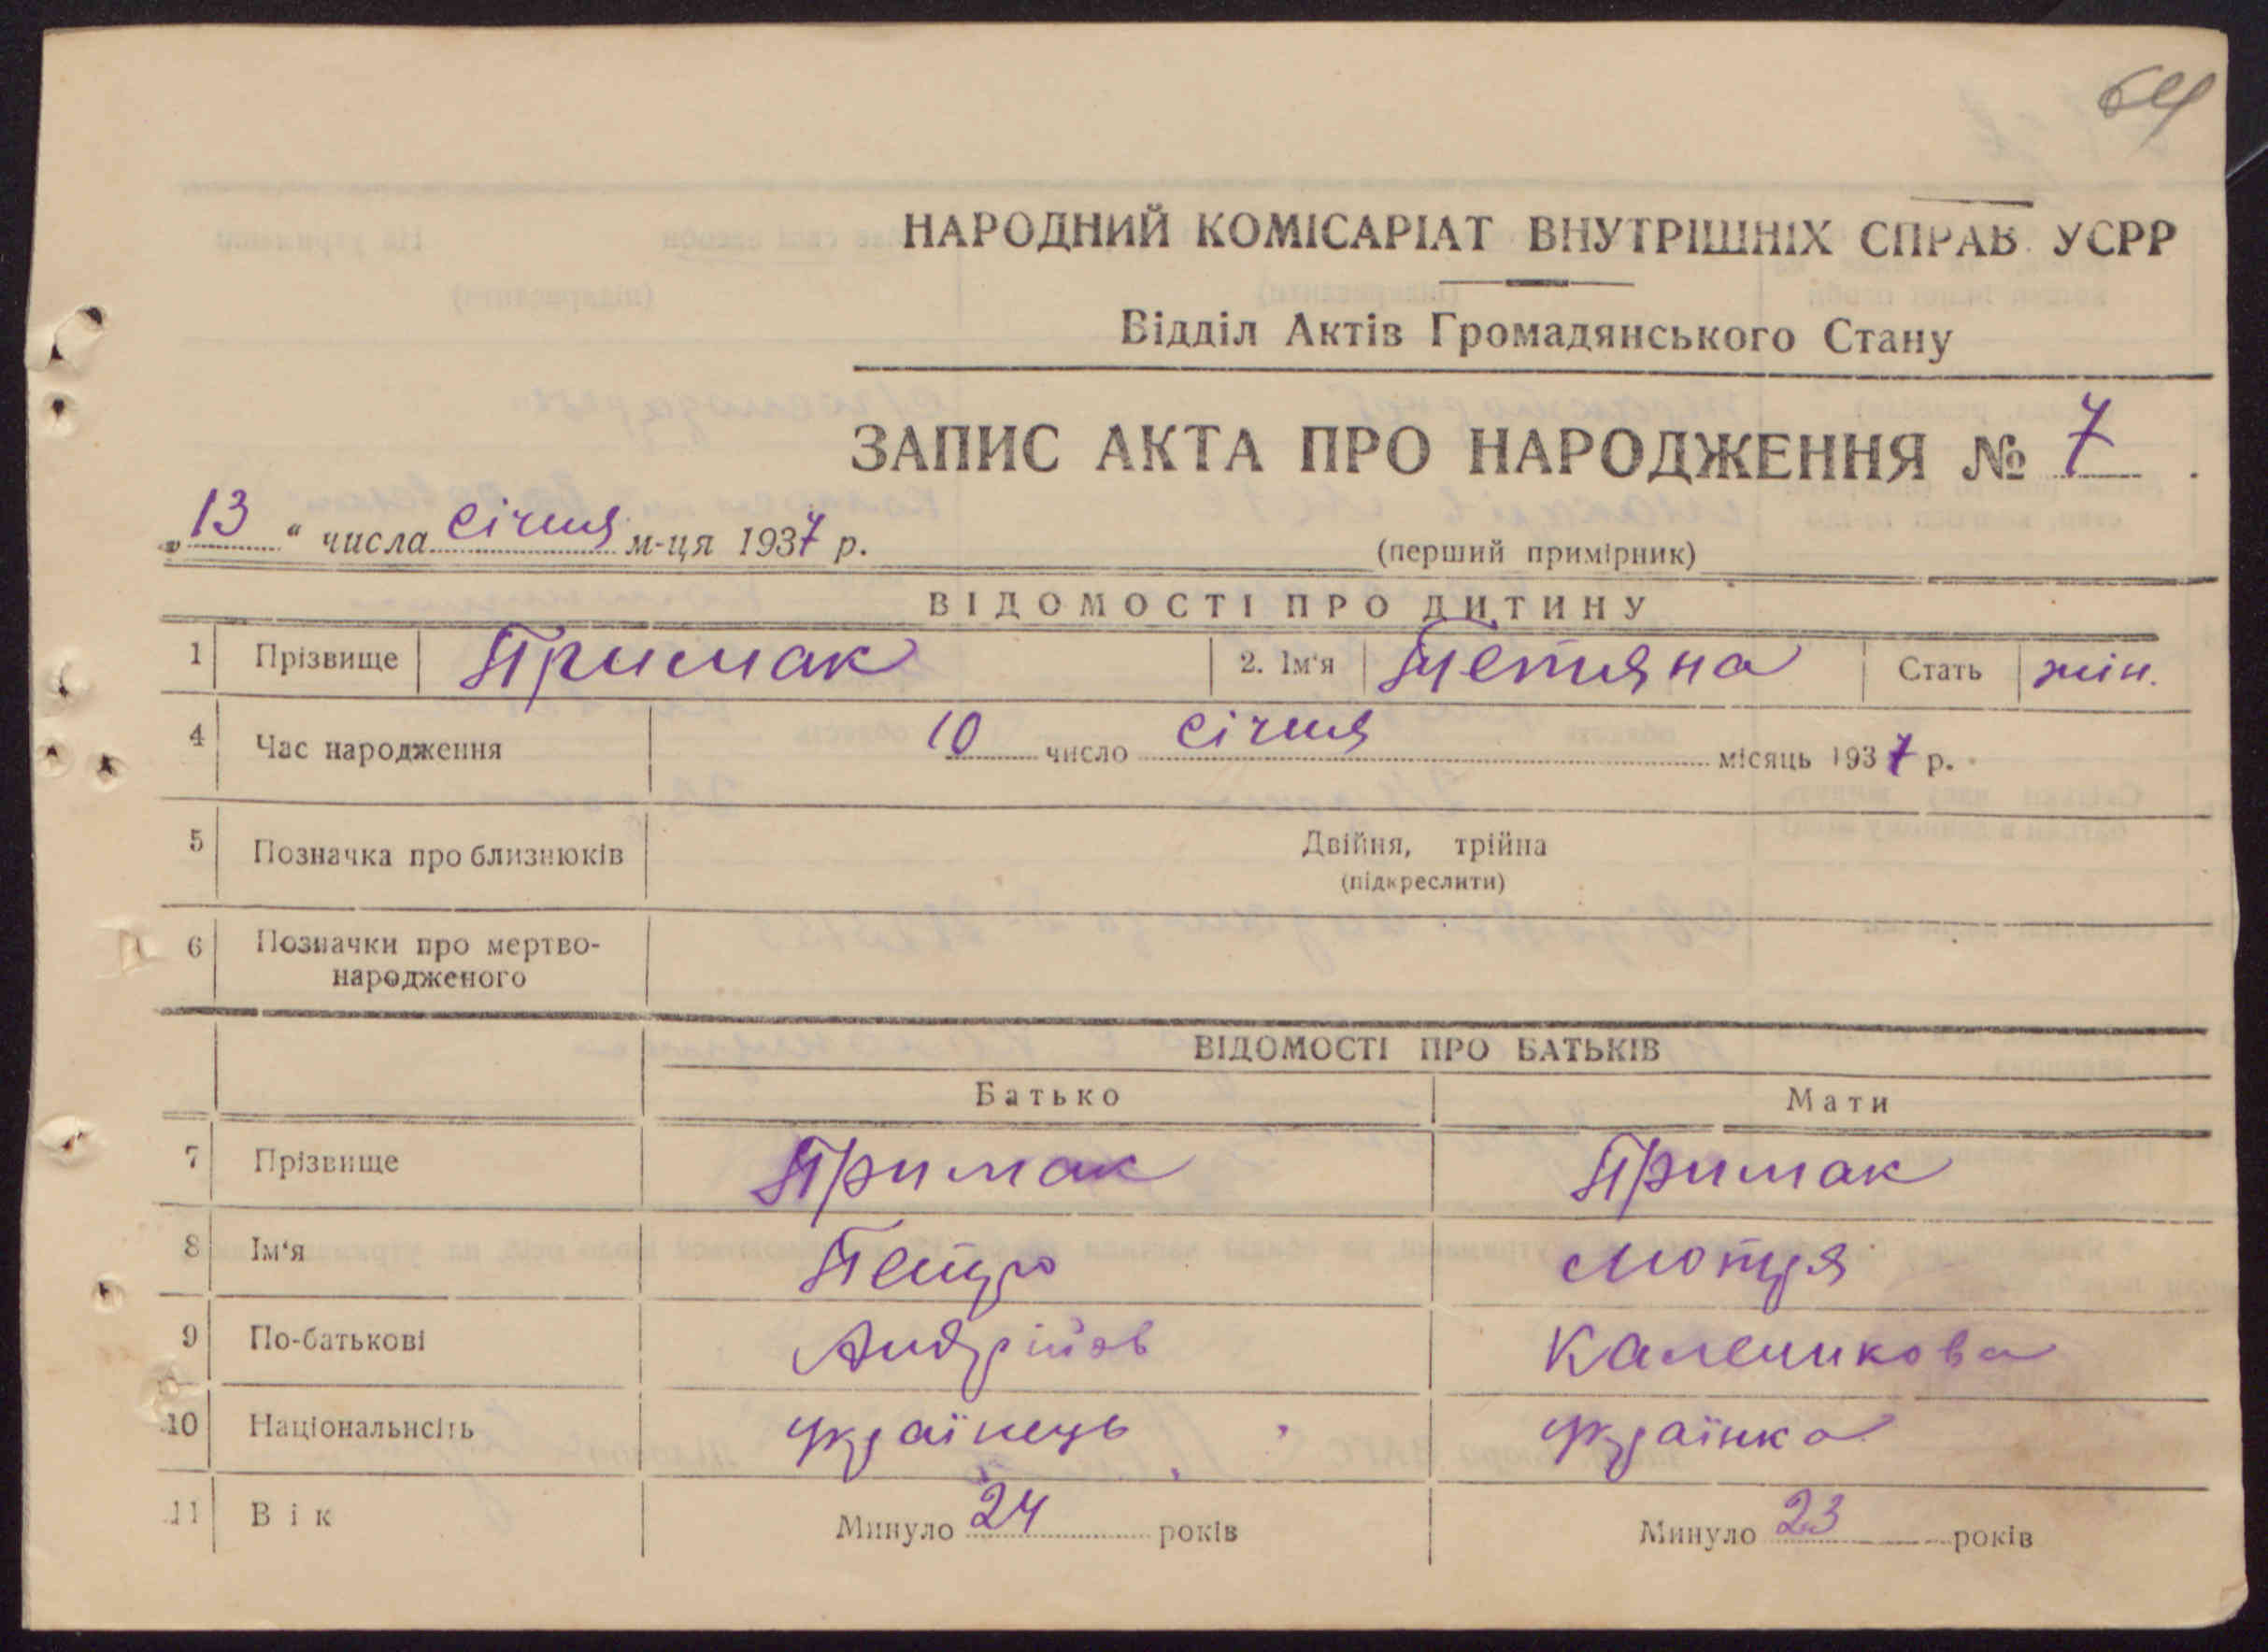 64
НАРОДНИЙ КОМІСАРІАТ ВНУТРІШНІХ СПРАВ УСРР
Відділ Актів Громадянського Стану
ЗАПИС АКТА ПРО НАРОДЖЕННЯ № 7
„13“ числа січня м-ця 1937 р.
(перший примірник)
ВІДОМОСТІ ПРО ДИТИНУ
1 Прізвище Примак 2. Ім'я Тетяна Стать жін.
4 Час народження 10 число січня місяць 1937 р.
5 Позначка про близнюків Двійня, трійна
(підкреслити)
6 Позначки про мертво-
народженого
ВІДОМОСТІ ПРО БАТЬКІВ
Батько Мати
7 Прізвище Примак Примак
8 Ім'я Петро Мотря
9 По-батькові Андрійов Каленикова
10 Національнсіть українець українка
11 Вік Минуло 24 років Минуло 23 років